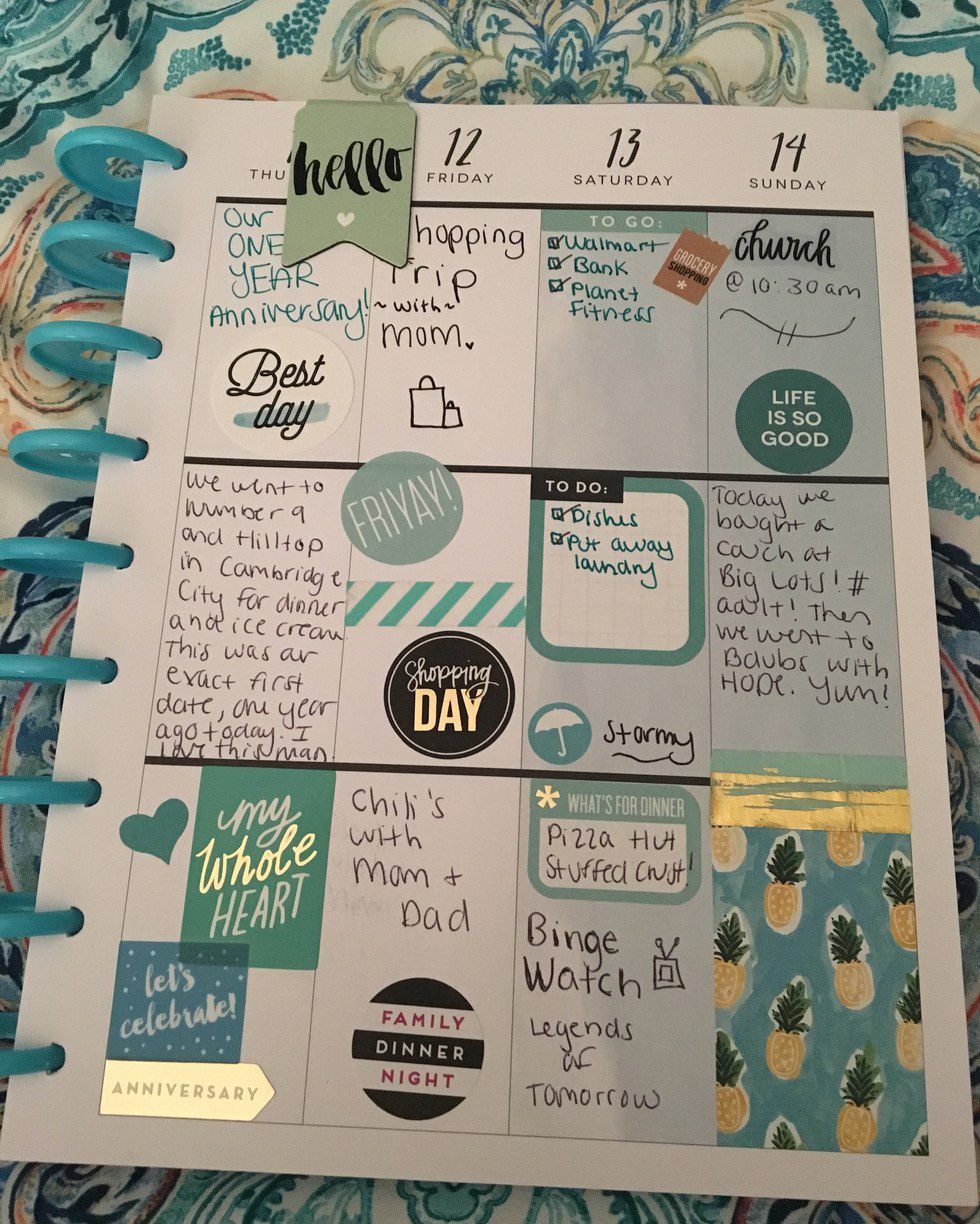 THU
hello
12
FRIDAY
13
SATURDAY
14
SUNDAY
Our
ONE
YEAR
Anniversary!
Best
day
We went to
Number 9
and Hilltop
in Cambridge
City for dinner
and ice cream
This was our
exact first
date, one year
ago today. I
love this man.
my
whole
HEART
let's
celebrate!
ANNIVERSARY
hopping
Trip
~with~
mom.
FRIYAY!
Shopping
DAY
Chili's
with
Mom +
Dad
FAMILY
DINNER
NIGHT
TO GO:
Walmart
Bank
Planet
Fitness
GROCERY
SHOPPING
TO DO:
Dishes
Put away
laundry
Stormy
WHAT'S FOR DINNER
Pizza Hut
Stuffed Crust!
Binge
Watch
Legends
of
Tomorrow
church
@ 10:30am
LIFE
IS SO
GOOD
Today we
bought a
couch at
Big Lots! #
adult! Then
we went to
Bdubs with
Hope. Yum!